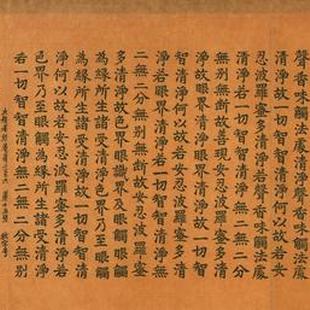 聲香味觸法處清淨聲香味觸法處
清淨故一切智智清淨何以故若安
忍波羅蜜多清淨若聲香味觸法處
清淨若一切智智清淨無二無二分
無別無斷故善現安忍波羅蜜多清
淨故眼界清淨眼界清淨故一切智
智清淨何以故若安忍波羅蜜多清
淨若眼界清淨若一切智智清淨無
二無二分無別無斷故安忍波羅蜜
多清淨故色界眼識界及眼觸眼觸
為緣所生諸受清淨色界乃至眼觸
為緣所生諸受清淨故一切智智清
淨何以故若安忍波羅蜜多清淨若
色界乃至眼觸為緣所生諸受清淨
若一切智智清淨無二無二分無別